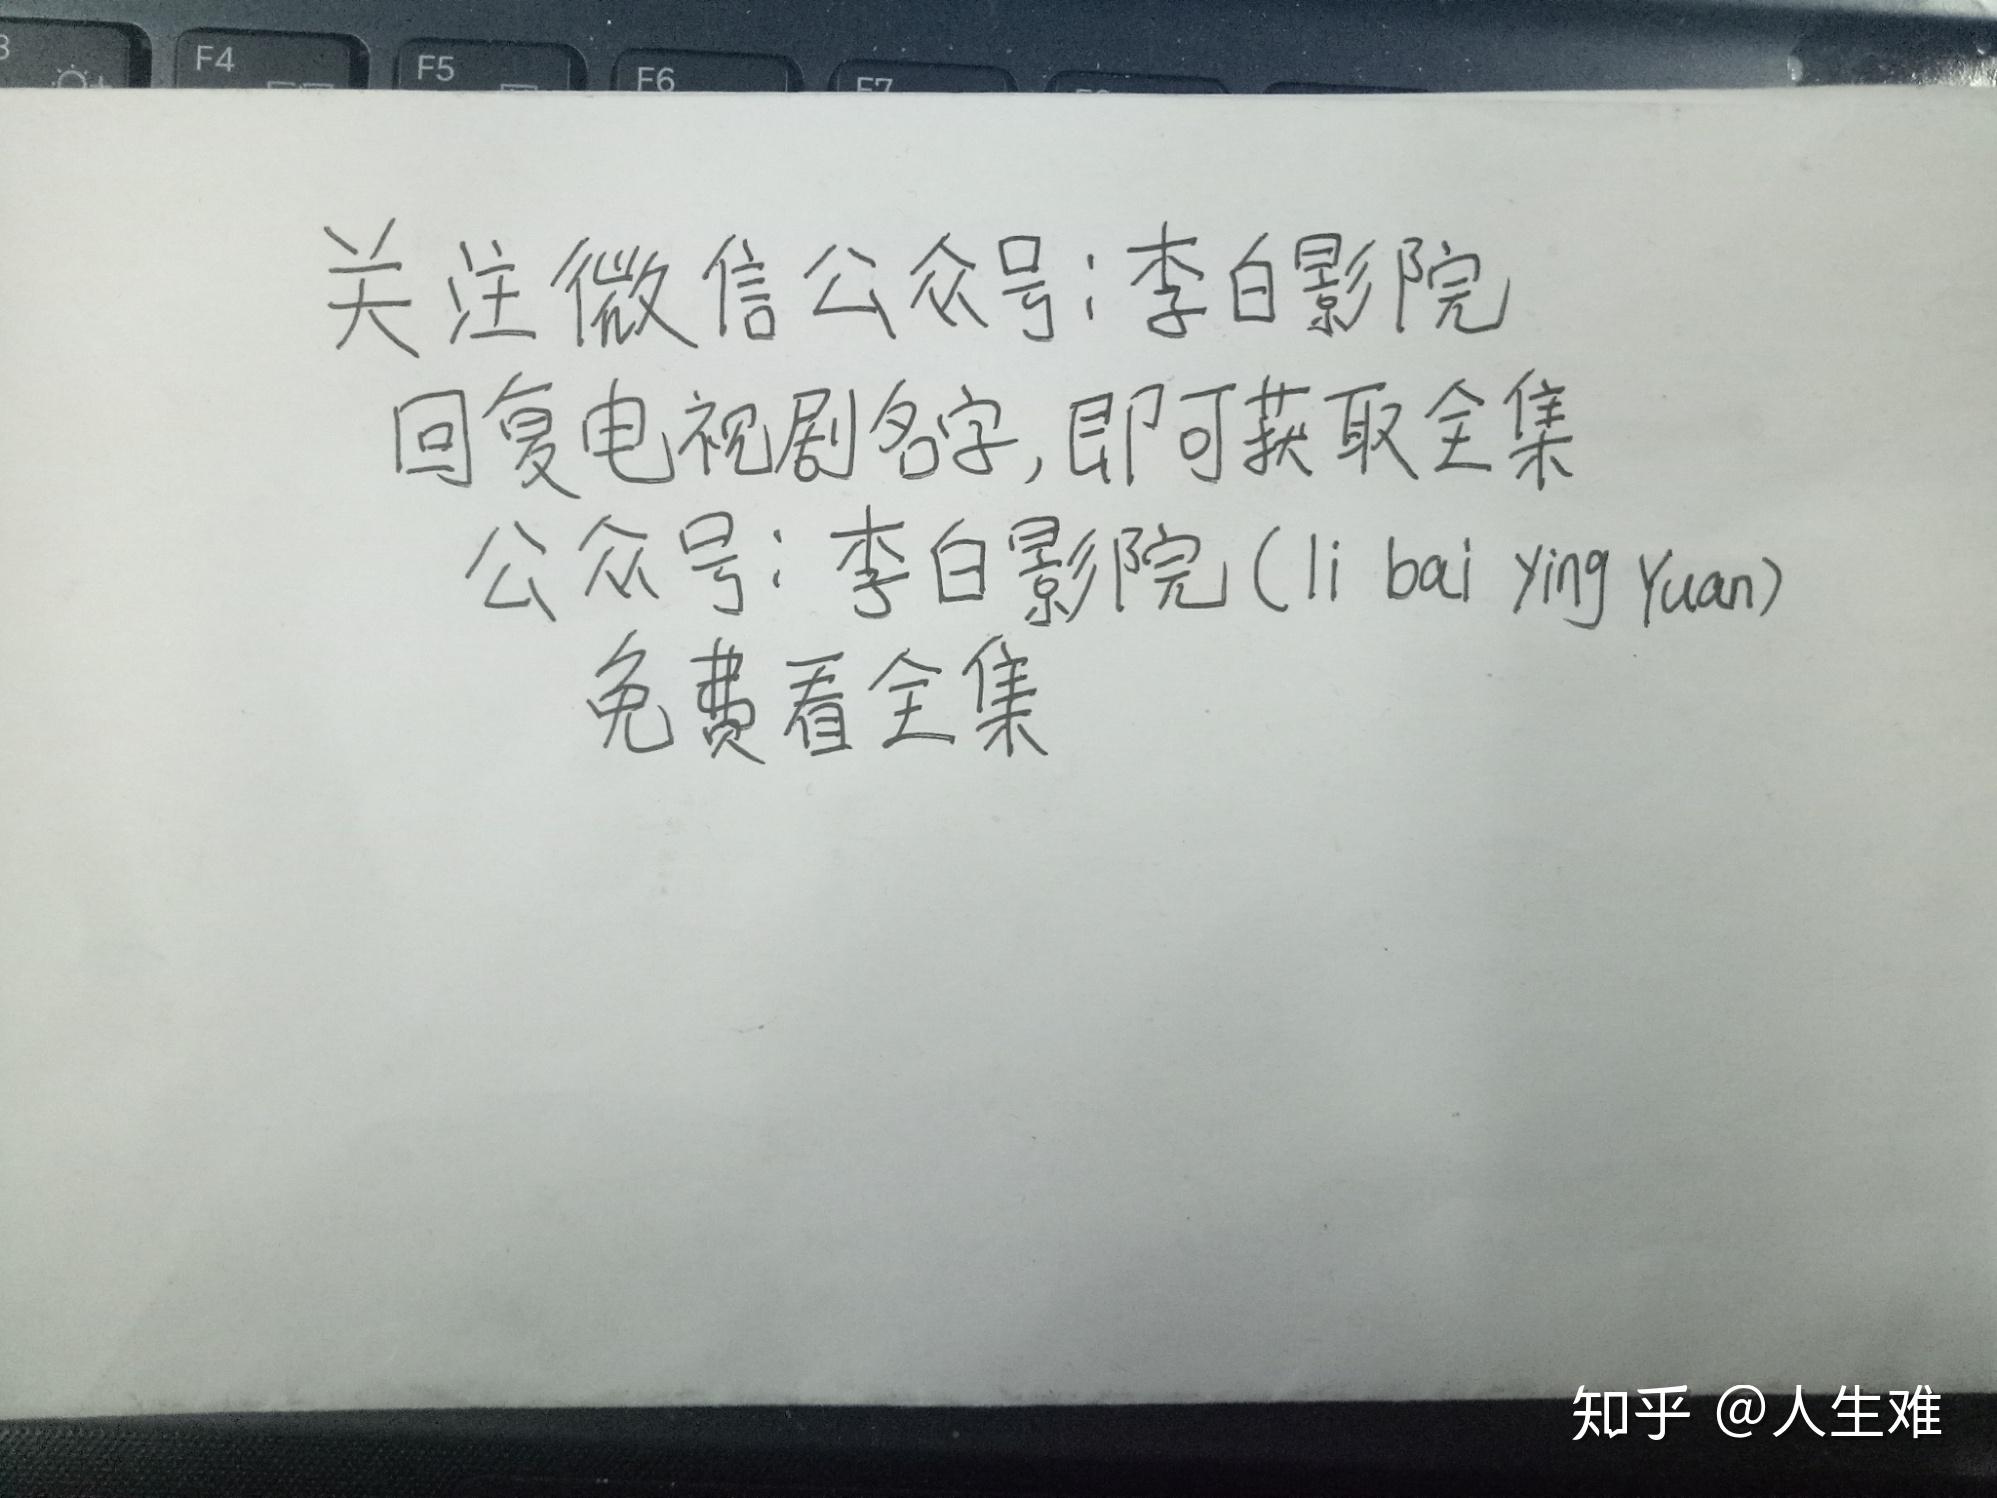 F4
F5
F6
F7
关注微信公众号:李白影院
回复电视剧名字,即可获取全集
公众号:李白影院(li bai ying yuan)
免费看全集
知乎 @人生难